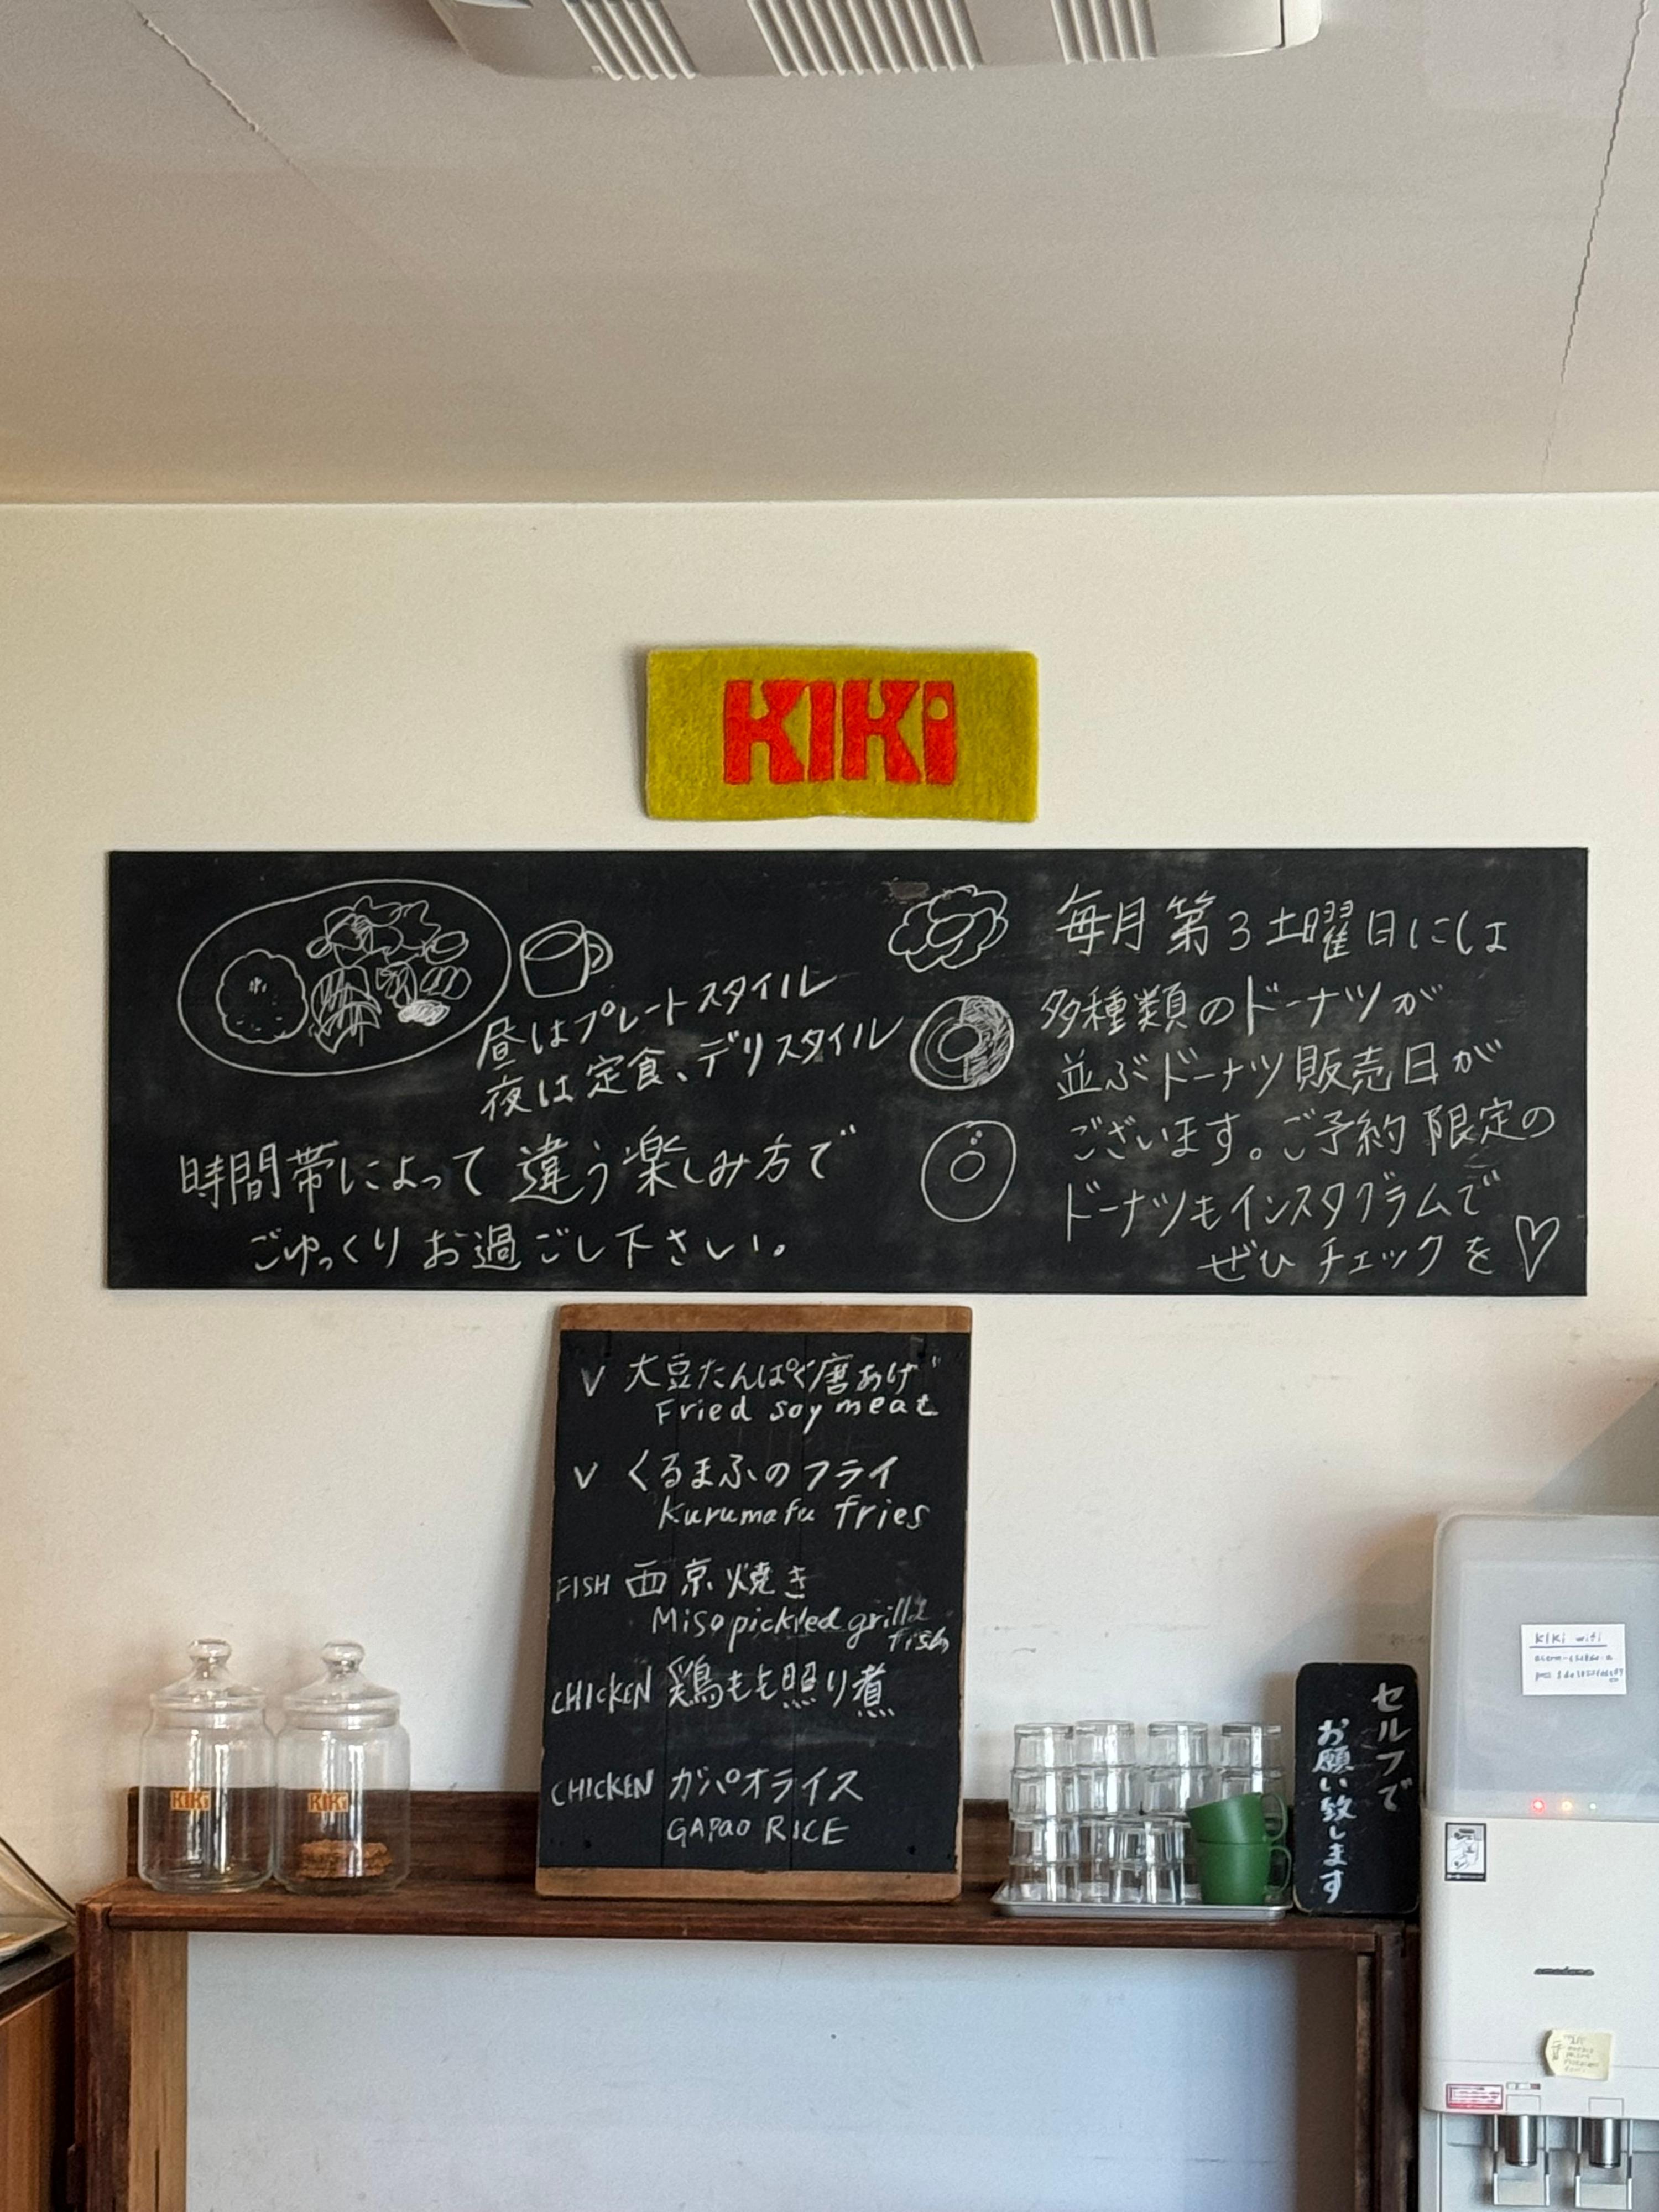 KIKi
昼はプレートスタイル
夜は定食、デリスタイル
時間帯によって違う楽しみ方で
ごゆっくりお過ごし下さい。
毎月第3土曜日には
多種類のドーナツが
並ぶドーナツ販売日が
ございます。ご予約限定の
ドーナツもインスタグラムで
ぜひチェックを♡
V 大豆たんぱく唐あげ
Fried soy meat
V くるまふのフライ
Kurumafu fries
FISH 西京焼き
Miso pickled grilld
fish
CHICKEN 鶏もも照り煮
CHICKEN ガパオライス
GAPAO RICE
KIKi
KIKi
セルフで
お願い致します
KIKI wifi
amadana